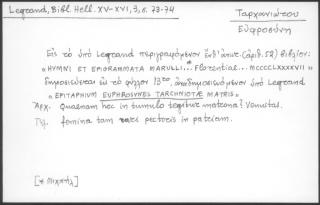 Legrand, Bibl. Hell. XV-XVI, 3, σ. 73-74
Ταρχανιώτου
Εὐφροσύνη
Εἰς τὸ ὑπὸ Legrand περιγραφόμενον ἐνθ' ἀνωτ. (ἀριθ. 52) βιβλίον:
"HYMNI ET EPIGRAMMATA MARULLI... Florentiae... MCCCCLXXXXVII"
δημοσιεύεται εἰς τὸ φύλλον 13το ἀναδημοσιευόμενον ὑπὸ Legrand
"EPITAPHIUM EUPHROSYNES TARCHNIOTÆ MATRIS"
Ἀρχ. Quaenam hoc in tumulo tegitur matrona? Venustas.
Τελ. femina tam pectoris in patriam.
[* Μιχαήλ]